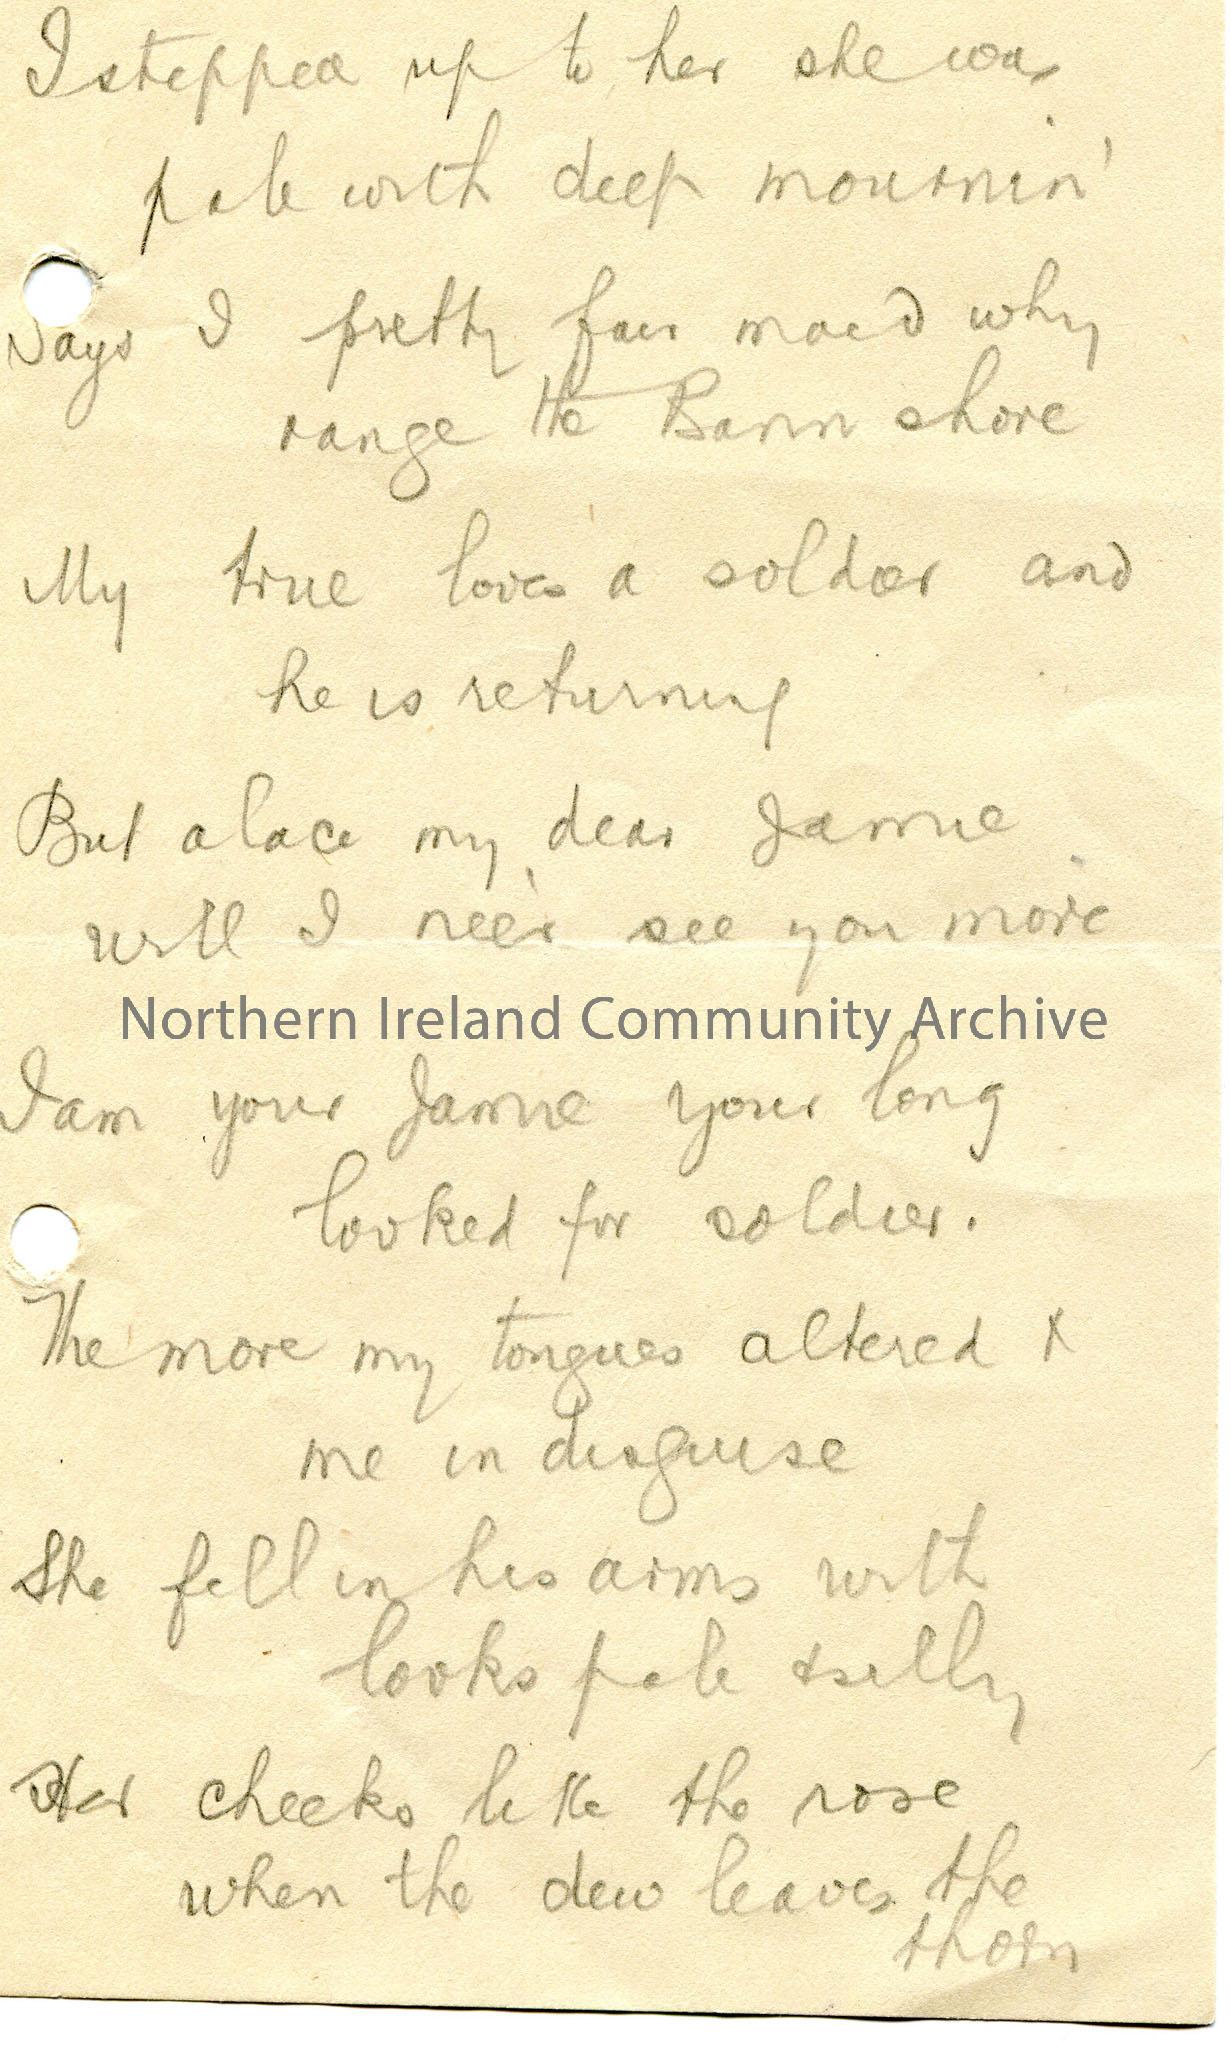 I stepped up to her she was
pale with deep mournin'
Says I pretty fair maid why
range the Bann shore
My true loves a soldier and
he is returning
But alace my dear Jamie
will I nee'r see you more
Northern Ireland Community Archive
I am your Jamie your long
looked for soldier.
The more my tongues altered &
me in disguise
She fell in his arms with
looks pale &
Her cheeks like the rose
when the dew leaves the
thorn